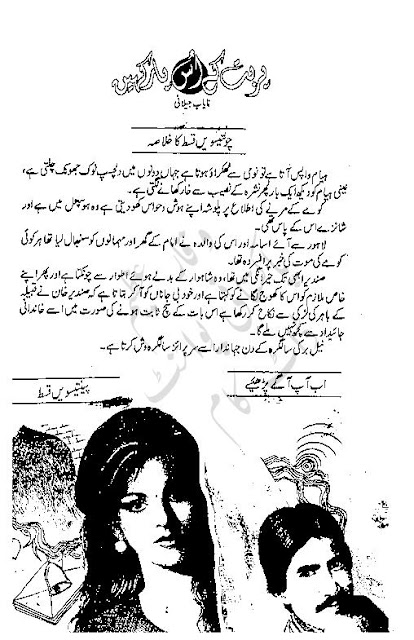 پربت کے اس پار کہیں
نایاب جیلانی
چونتیسویں قسط کا خلاصہ
ہیام واپس آتا ہے تو نومی سے ٹکراؤ ہوتا ہے جہاں دونوں میں دلچسپ نوک جھونک چلتی ہے،
عینی ہیام کو دیکھ ایک بار پھر نشرہ کے نصیب سے خار کھانے لگتی ہے۔
کومے کے مرنے کی اطلاع پر پلوشہ اپنے ہوش و حواس کھو دیتی ہے وہ ہوسپٹل میں ہے اور
شانزے اس کے پاس تھی۔
لاہور سے آئے اسامہ اور اس کی والدہ نے امام کے گھر اور مہمانوں کو سنبھال لیا تھا ہر کوئی
کومے کی موت کی خبر پر افسردہ تھا۔
صندیر ابھی تک حیرانگی میں تھا، وہ شاہوار کے بدلے ہوئے اطوار سے چونکتا ہے اور پھر اپنے
خاص ملازم کو اس کا کھوج لگانے کو کہتا ہے اور خود بی جاناں کو آ کر بتاتا ہے کہ صندیر خان نے قبیلہ
کے باہر کی لڑکی سے نکاح کر رکھا ہے اس بات کے سچ ثابت ہونے کی صورت میں اسے خاندانی
جائیداد سے کچھ نہیں ملے گا۔
نیل بر کی سالگرہ کے دن جہاندار اسے سرپرائز سالگرہ وش کرتا ہے۔
پینتیسویں قسط
اب آپ آگے پڑھیئے